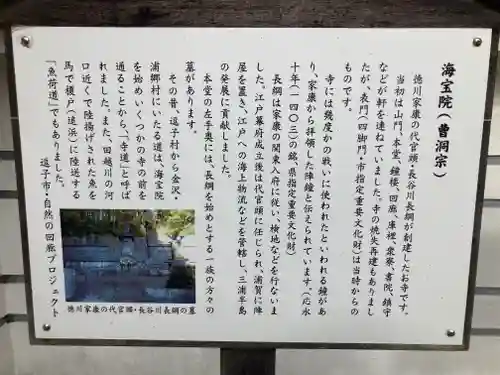 海宝院（曹洞宗）
徳川家康の代官頭・長谷川長綱が創建したお寺です。
当初は山門、本堂、鐘楼、回廊、庫裡、衆寮、書院、鎮守
などが軒を連ねていました。寺の焼失再建もありまし
たが、表門（四脚門・市指定重要文化財）は当時からの
ものです。
寺には幾度かの戦いに使われたといわれる鐘があ
り、家康から拝領した陣鐘と伝えられています。（応永
十年（一四〇三）の銘、県指定重要文化財）
長綱は家康の関東入府に従い、検地などを行ないま
した。江戸幕府成立後は代官頭に任じられ、浦賀に陣
屋を置き、江戸への海上物流などを管轄し、三浦半島
の発展に貢献しました。
本堂の左手奥には、長綱を始めとする一族の方々の
墓があります。
その昔、逗子村から金沢・
浦郷村にいたる道は、海宝院
を始めいくつかの寺の前を
通ることから、「寺道」と呼ば
れました。また、田越川の河
口近くで陸揚げされた魚を
馬で榎戸（追浜）に陸送する
「魚荷道」でもありました。
逗子市・自然の回廊プロジェクト
徳川家康の代官頭・長谷川長綱の墓